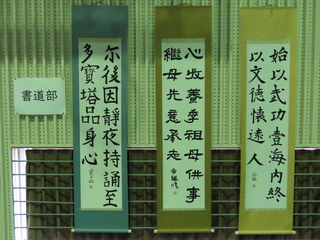 書道部
始以武功壹海內終
以文徳懷遠人
心收養幸祖母供事
繼母先意承志
尓後因靜夜持誦至
多寶塔品身心